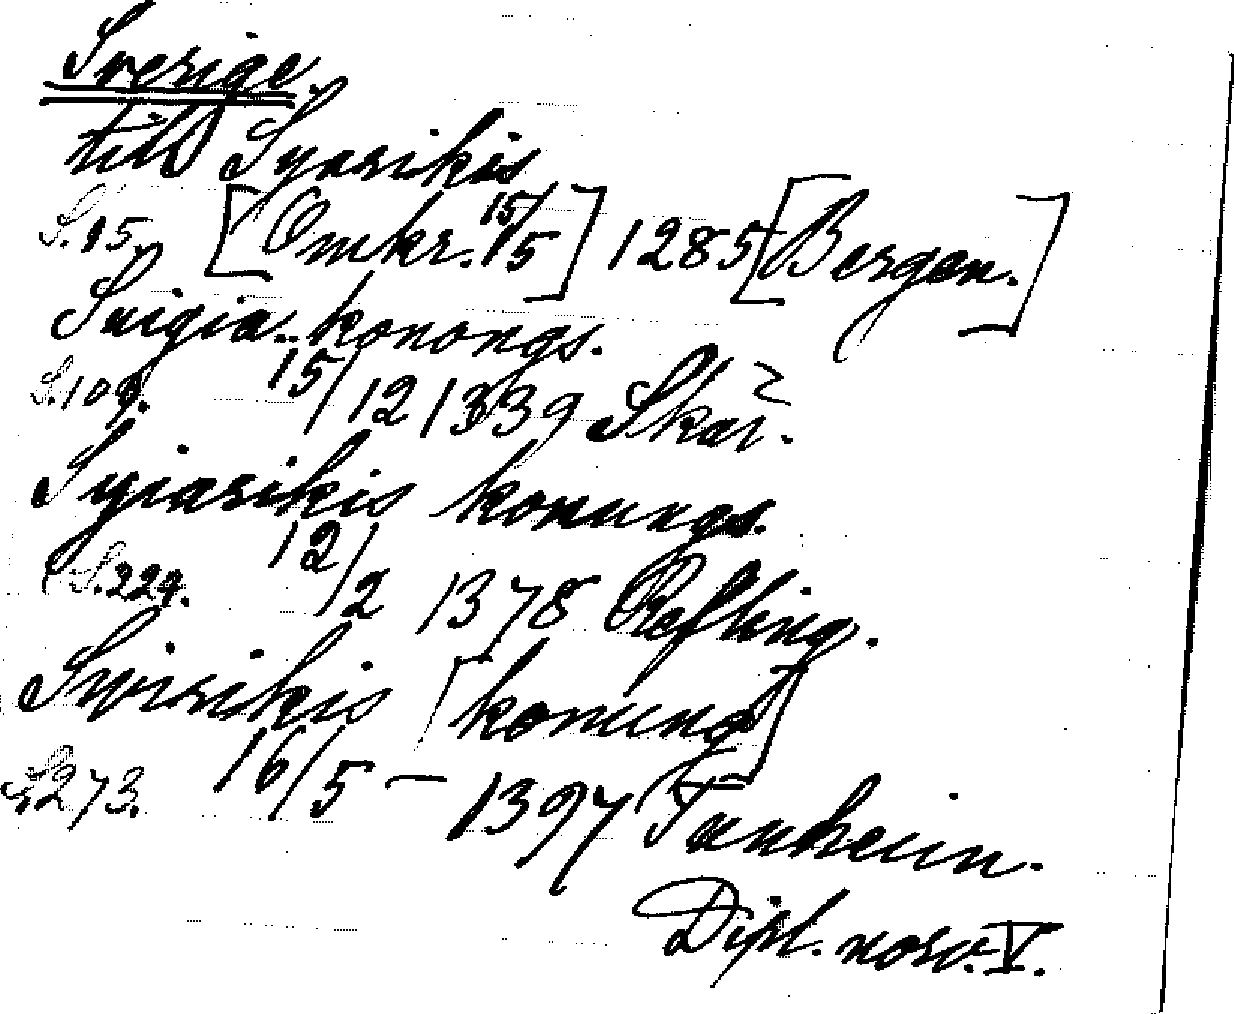 Sverige.
till Syarikis
S. 15. [Omkr. 15/15] 1285 [Bergen.]
Suigia konongs.
S. 109. 15/12 1339 Skar.
Syiarikis konungs.
S. 224. 12/2 1378 Refling.
Syirikis [konungs]
S. 273. 16/5 – 1397 Tunheim.
Dipl. norv. V.